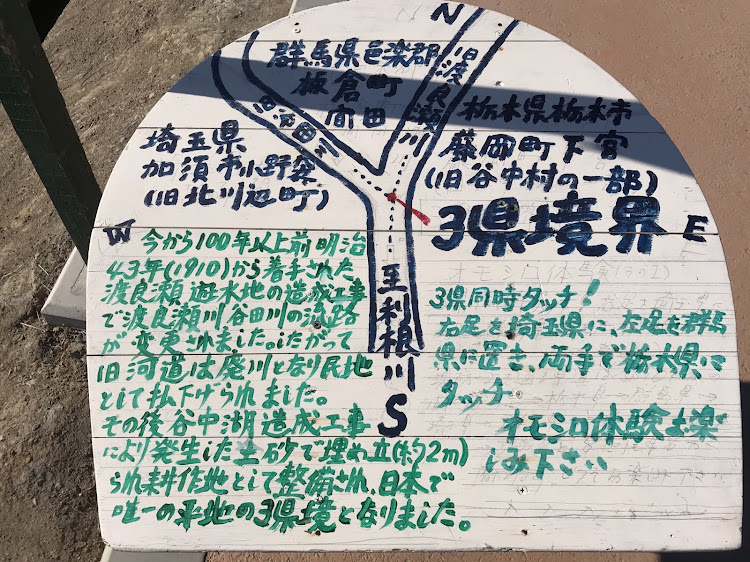 N
群馬県邑楽郡
板倉町
間田
旧渡良瀬川
旧谷田川
栃木県栃木市
藤岡町下宮
(旧谷中村の一部)
埼玉県
加須市小野袋
(旧北川辺町)
3県境界
W
E
至利根川
S
今から100年以上前明治
43年(1910)から着手された
渡良瀬遊水地の造成工事
で渡良瀬川谷田川の流路
が変更されました。したがって
旧河道は廃川となり民地
として払下げられました。
その後谷中湖造成工事
により発生した土砂で埋め立(約2m)
られ耕作地として整備され、日本で
唯一の平地の3県境となりました。
3県同時タッチ!
右足を埼玉県に、左足を群馬
県に置き、両手で栃木県に
タッチ
オモシロ体験お楽
しみ下さい